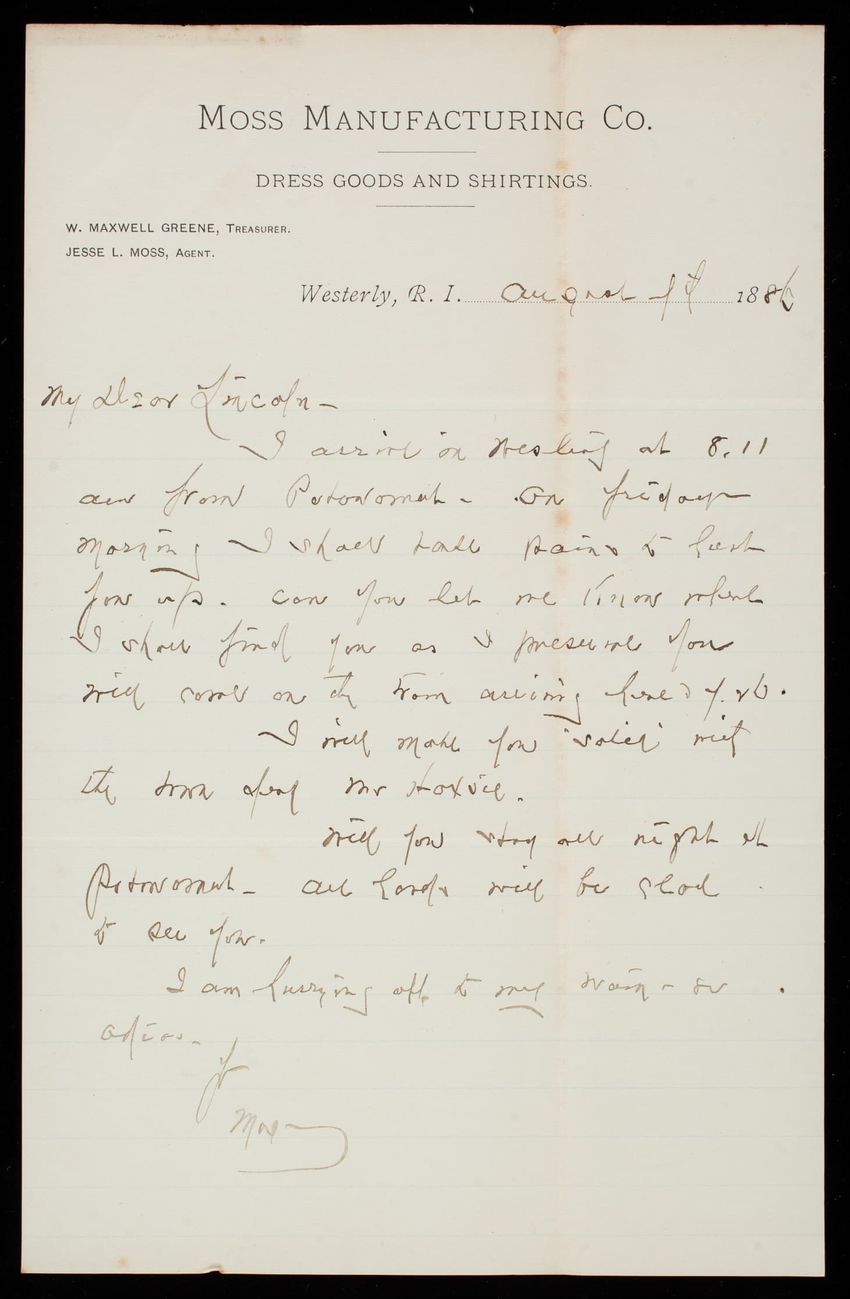 MOSS MANUFACTURING CO.
DRESS GOODS AND SHIRTINGS.
W. MAXWELL GREENE, TREASURER.
JESSE L. MOSS, AGENT.
Westerly, R. I. august 1886
My Dear Lincoln -
I arrive in Westerly at 8.11
am from Potowomut - On friday
morning I shall take pains to hunt
you up. can you let me know where
I shall find you as I presume you
will come on the train arriving here
I will make you "solid" with
the town Mr Hoxsie.
Will you stay all night at
Potowomut - all hands will be glad
to see you.
I am hurrying off to my train - so
adios.
Yr
Max